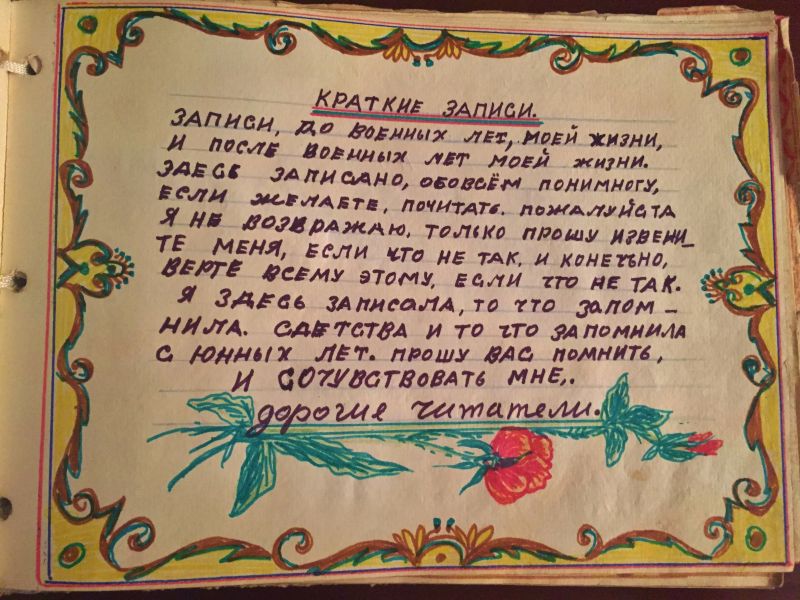 КРАТКИЕ ЗАПИСИ.
ЗАПИСИ, ДО ВОЕННЫХ ЛЕТ, МОЕЙ ЖИЗНИ,
И ПОСЛЕ ВОЕННЫХ ЛЕТ МОЕЙ ЖИЗНИ.
ЗДЕСЬ ЗАПИСАНО, ОБОВСЁМ ПОНИМНОГУ,
ЕСЛИ ЖЕЛАЕТЕ, ПОЧИТАТЬ. ПОЖАЛУЙСТА
Я НЕ ВОЗВРАЖАЮ, ТОЛЬКО ПРОШУ ИЗВЕНИ_
ТЕ МЕНЯ, ЕСЛИ ЧТО НЕ ТАК, И КОНЕЧЬНО,
ВЕРТЕ ВСЕМУ ЭТОМУ, ЕСЛИ ЧТО НЕ ТАК.
Я ЗДЕСЬ ЗАПИСАЛА, ТО ЧТО ЗАПОМ_
НИЛА. СДЕТСТВА И ТО ЧТО ЗАПОМНИЛА
С ЮННЫХ ЛЕТ. ПРОШУ ВАС ПОМНИТЬ,
И СОЧУВСТВОВАТЬ МНЕ,.
дорогие читатели.